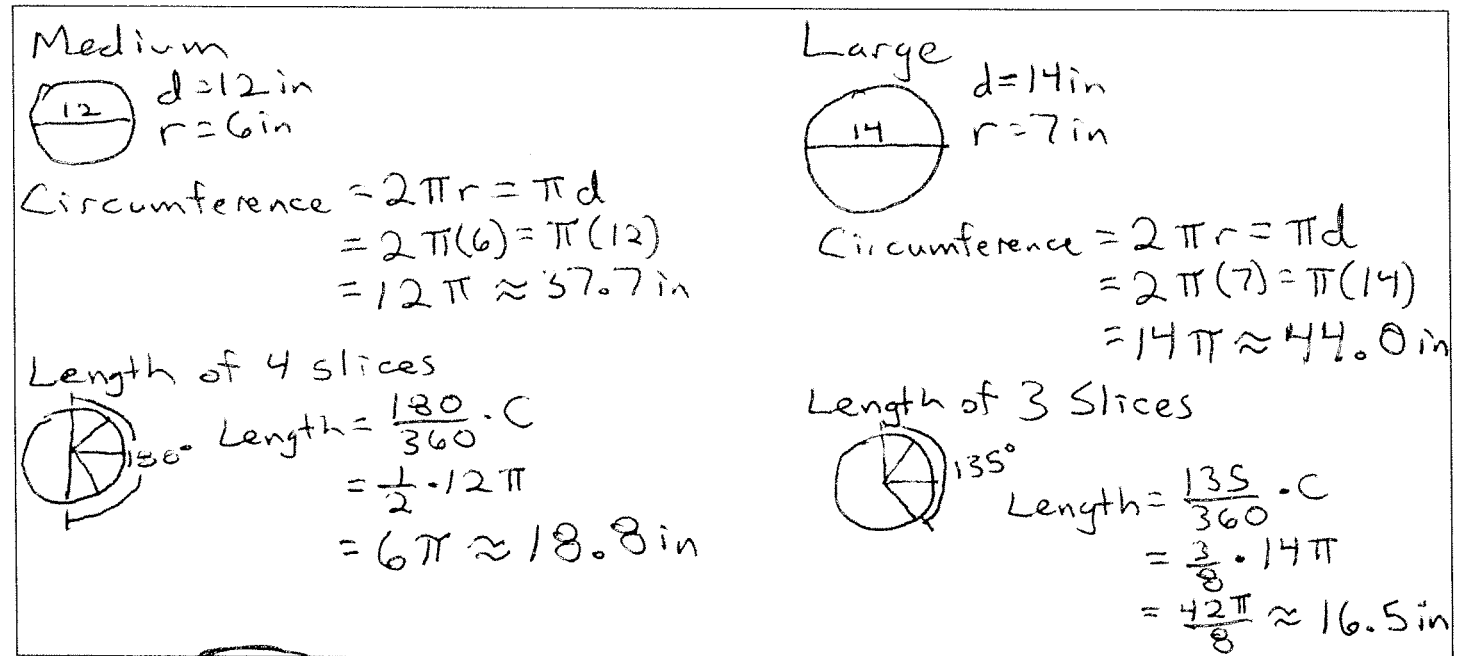 Medium
12
d=12in
r=6in
Circumference = 2πr = πd
= 2π(6) = π(12)
= 12π ≈ 37.7 in
Length of 4 slices
180°
Length = 180/360 · C
= 1/2 · 12π
= 6π ≈ 18.8 in
Large
14
d=14in
r=7in
Circumference = 2πr = πd
= 2π(7) = π(14)
= 14π ≈ 44.0 in
Length of 3 Slices
135°
Length = 135/360 · C
= 3/8 · 14π
= 42π/8 ≈ 16.5 in